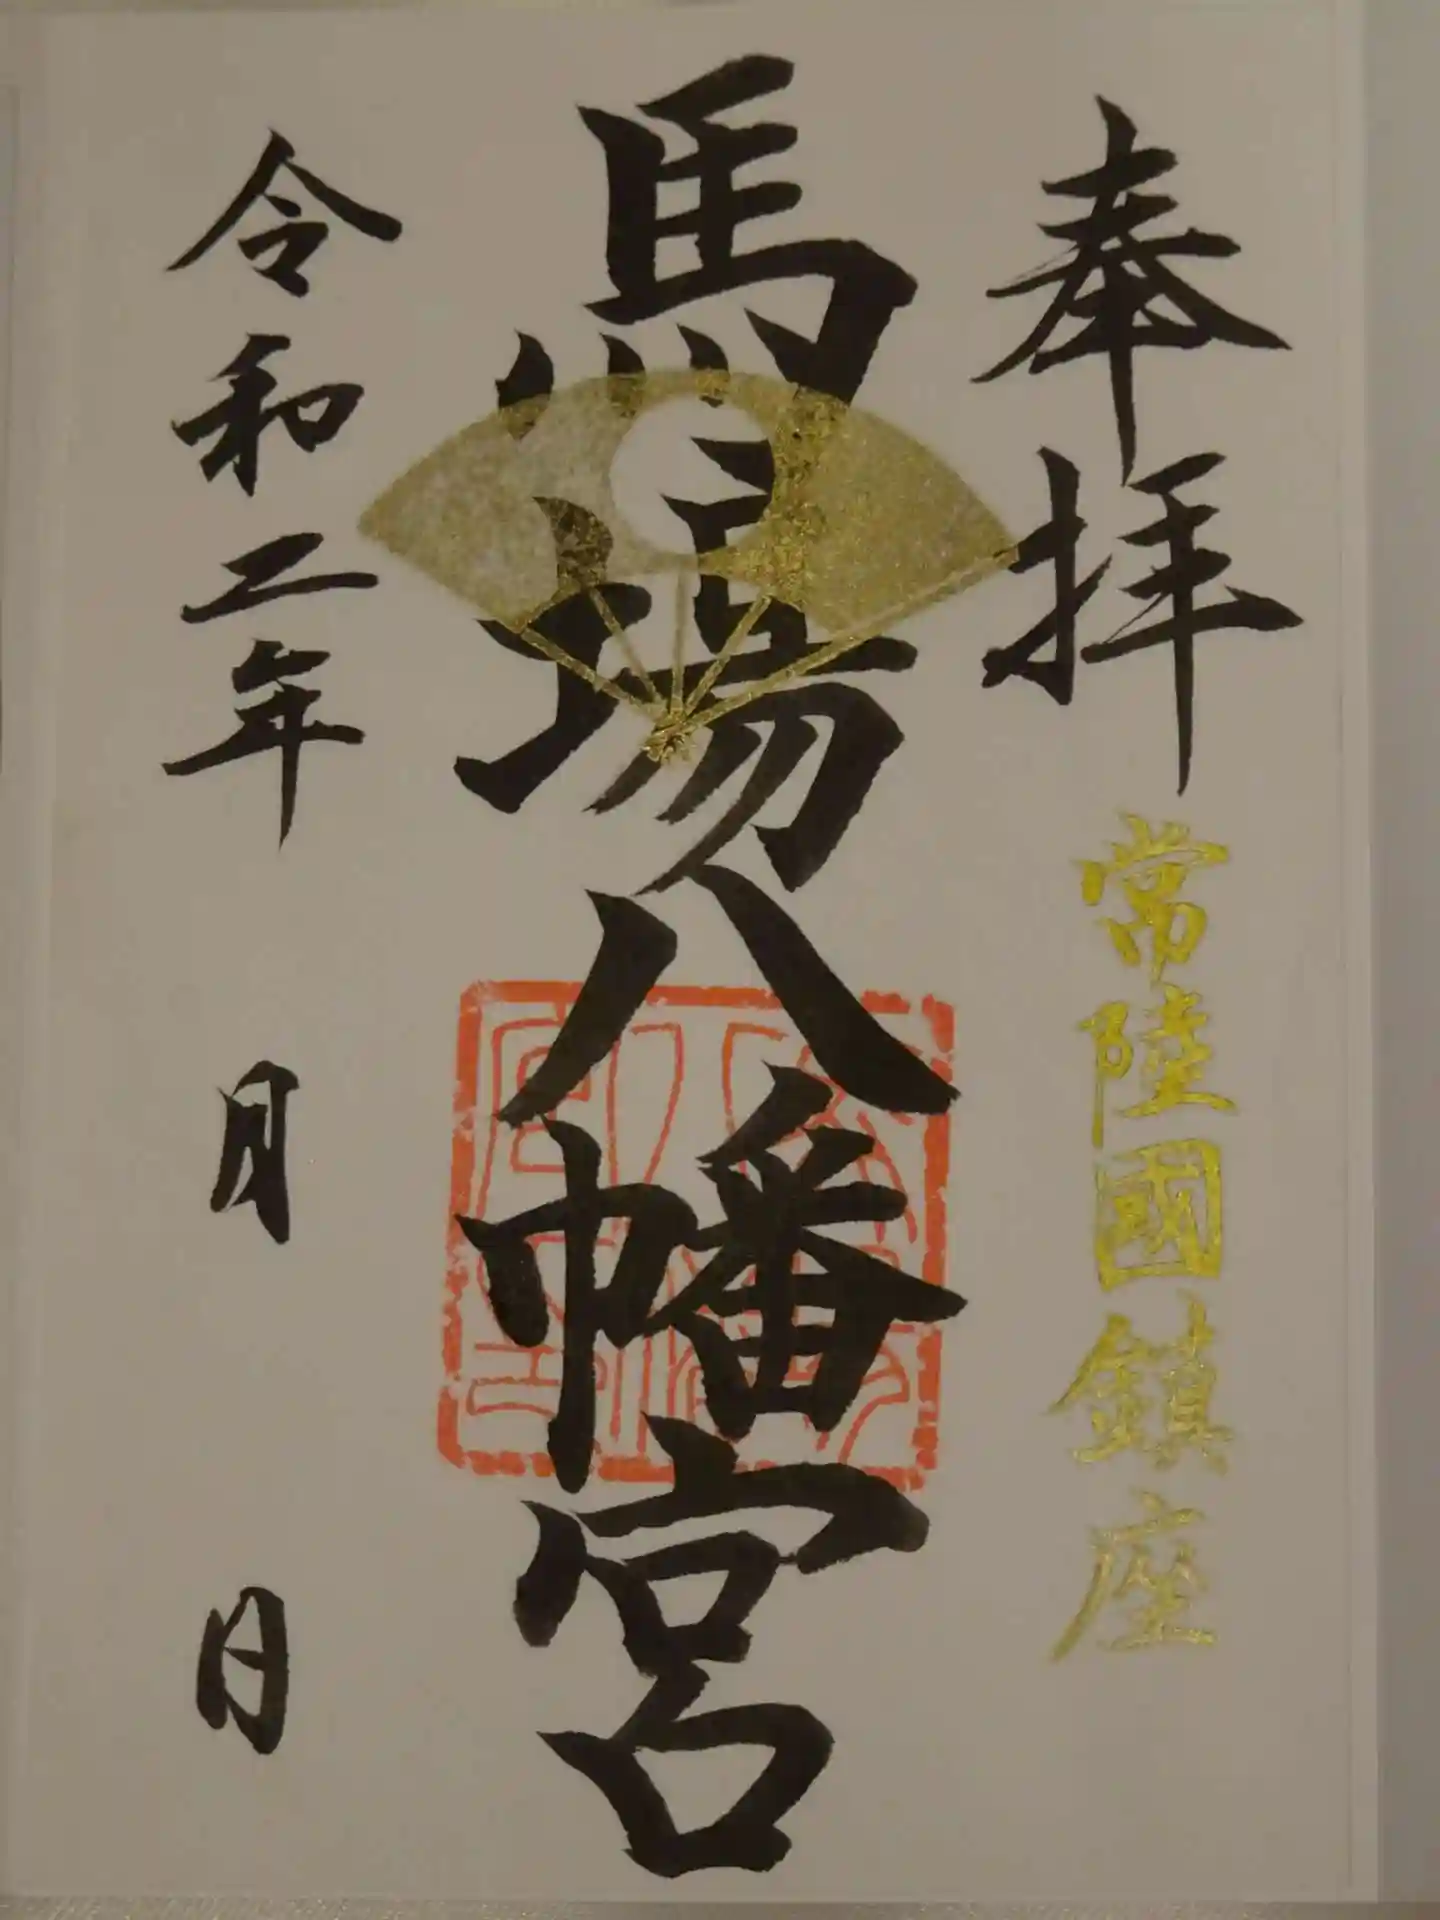 奉拝
常陸國鎮座
馬場八幡宮
令和二年 月 日